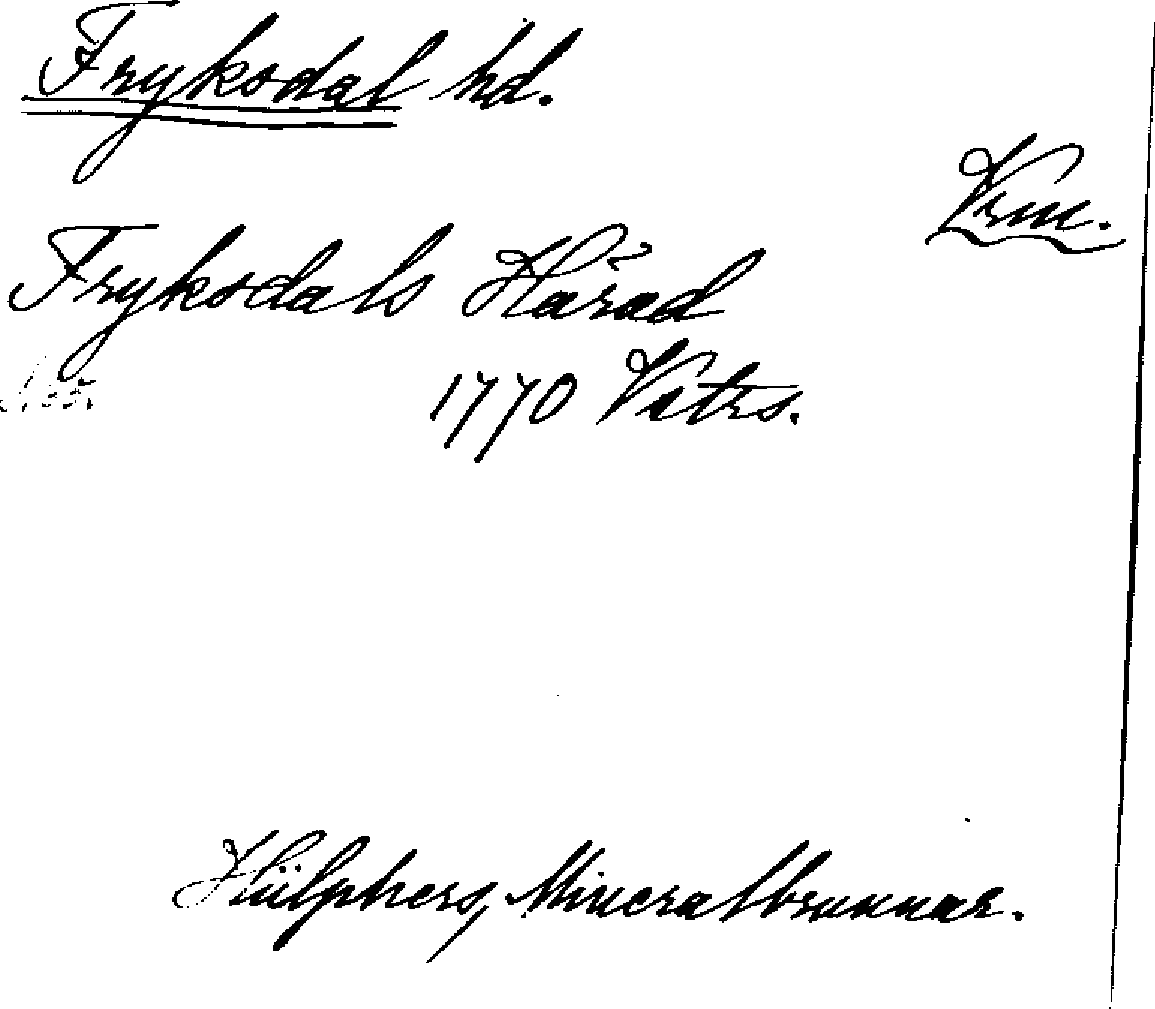 Fryksdal hd.
Vrm.
Fryksdals Härad
1770 Vstrs.
Hülphers, Mineralbrunnar.